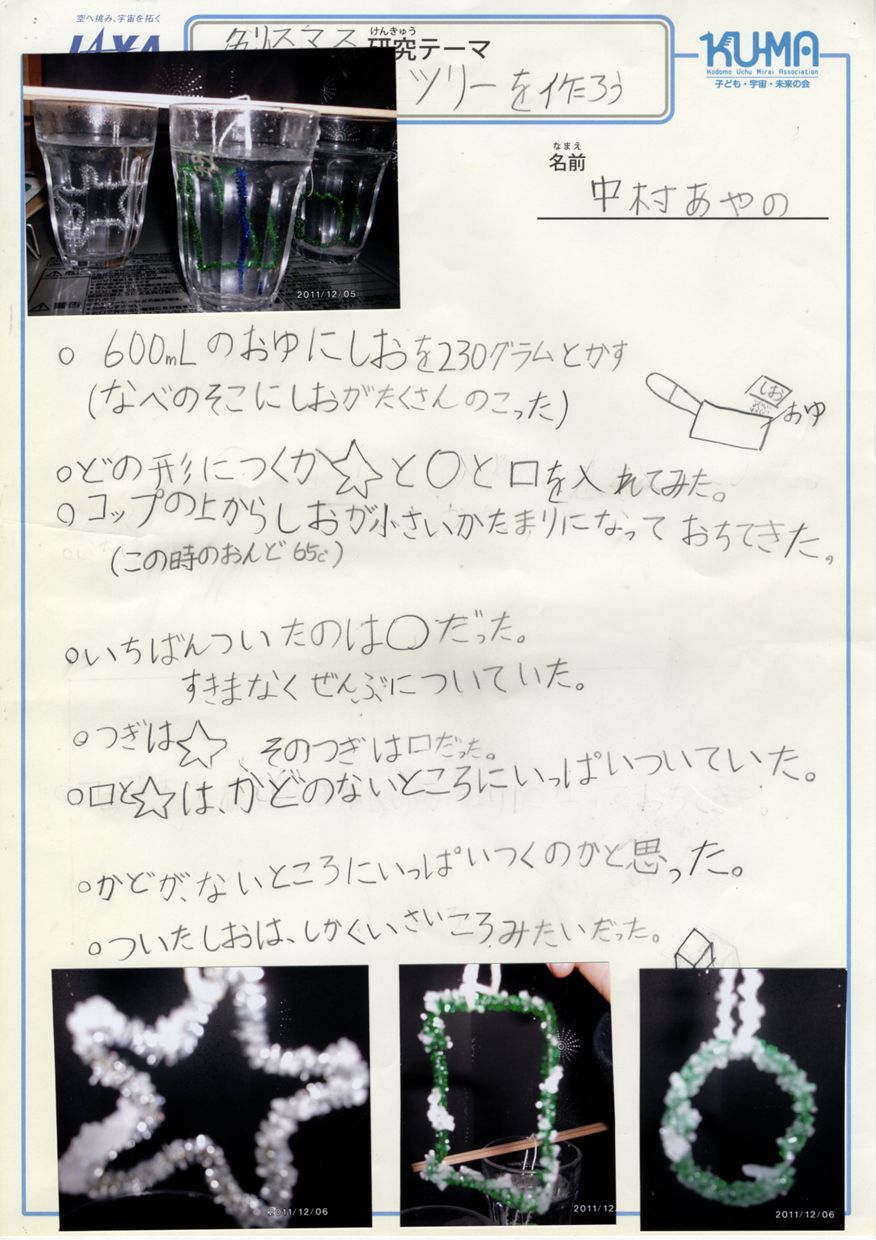 空へ挑み、宇宙を拓く
JAXA
けんきゅう
クリスマス 研究テーマ
ツリーを作ろう
KU-MA
Kodomo Uchu Mirai Association
子ども・宇宙・未来の会
なまえ
名前
中村あやの
2011/12/05
○ 600mLのおゆにしおを230グラムとかす
(なべのそこにしおがたくさんのこった)
しお
おゆ
○どの形につくか☆と○と□を入れてみた。
○コップの上からしおが小さいかたまりになっておちてきた。
(この時のおんど65℃)
○いちばんついたのは○だった。
すきまなくぜんぶについていた。
○つぎは☆、そのつぎは□だった。
○□と☆は、かどのないところにいっぱいついていた。
○かどが、ないところにいっぱいつくのかと思った。
○ついたしおは、しかくいさいころみたいだった。
2011/12/06
2011/12
2011/12/06